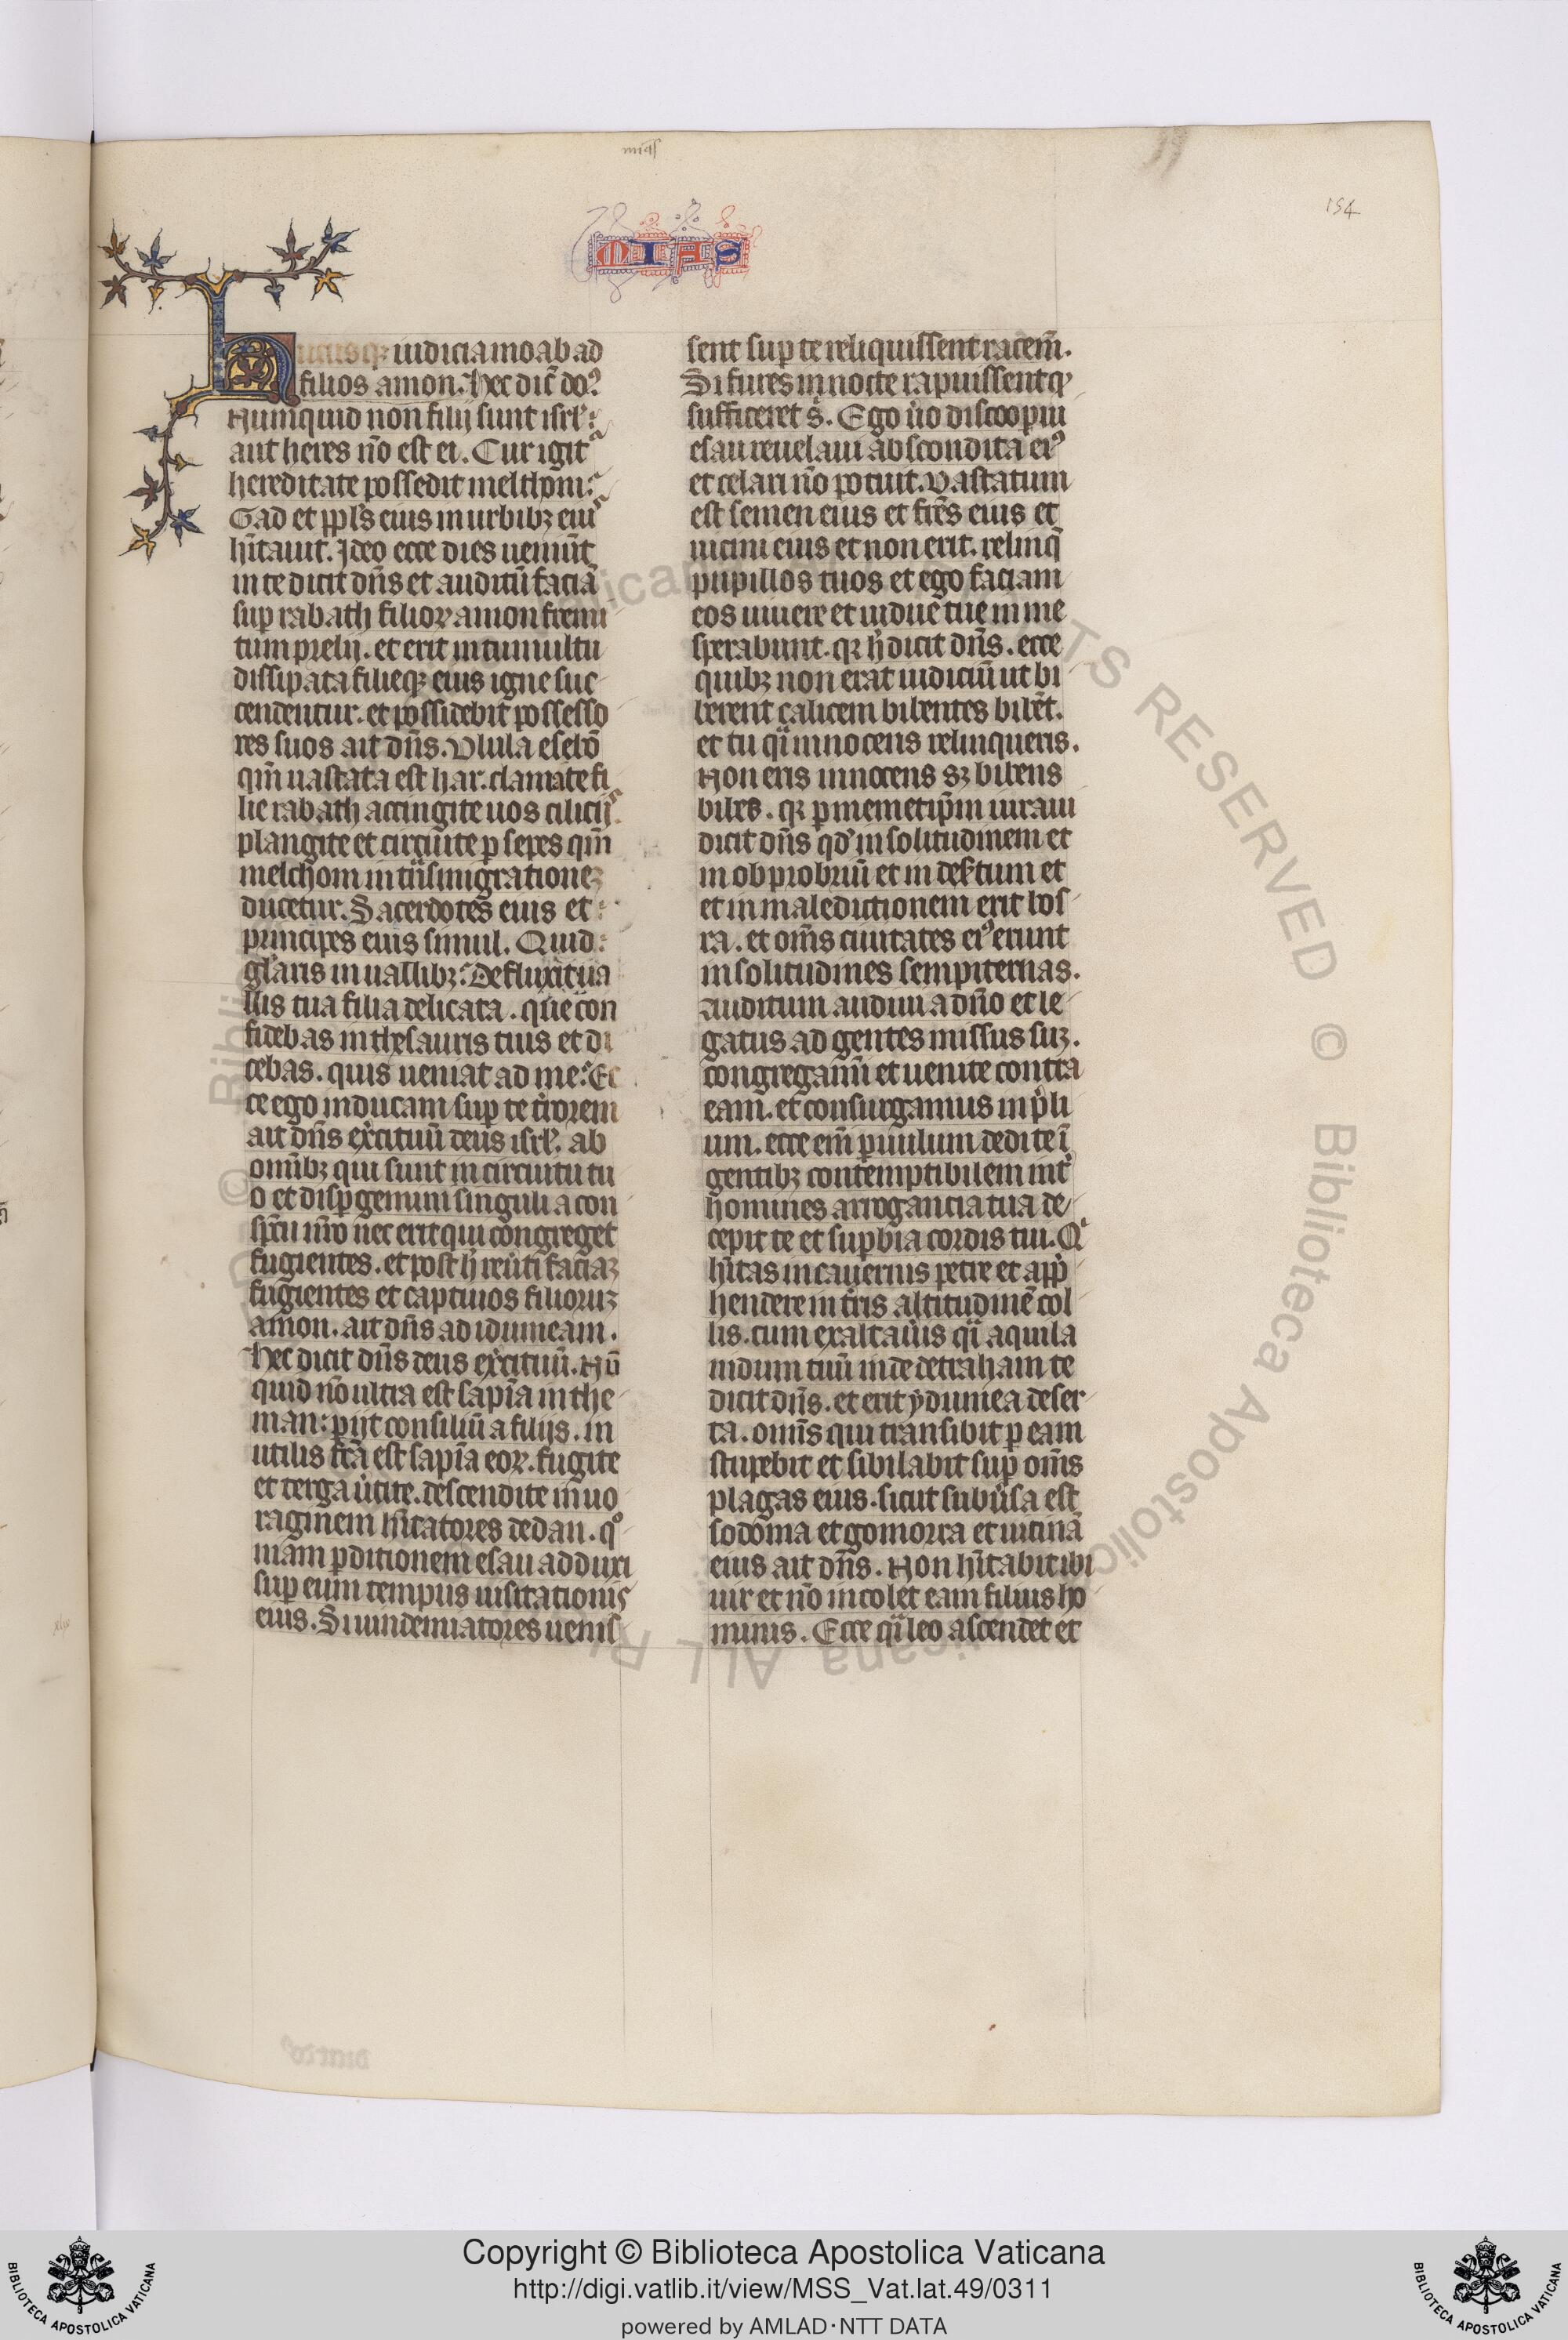 mias
154
MIAS
Hucusq; iudicia moab ad
filios amon. Hec dic̄ doꝰ
Numquid non filij sunt isrl̓.
aut heres nō est ei. Cur igit᷑
hereditate possedit melchom.
Gad et ppl̓s eius in urbibꝫ eiuˢ
hītauit. Ideo ecce dies ueniūt
in te dicit dn̄s et auditū faciā
sup̱ rabath filioꝝ amon fremi
tum prelij. et erit in tumultu
dissipata filieqꝫ eius igne suc
cendentur. et possidebit possesso
res suos ait dn̄s. Vlula esebō
qm̄ uastata est har. clamate fi
lie rabath accingite uos cilicijˢ.
plangite et circuite ꝑ sepes qm̄
melchom in tn̄smigrationeꝫ
ducetur. Sacerdotes eius et
principes eius simul. Quid
gl̓aris in uallibꝫ. Defluxit ua
llis tua filia delicata. que con
fidebas in thesauris tuis et di
cebas. quis ueniat ad me. Ec
ce ego inducam sup̱ te t̓rorem
ait dn̄s ex̓cituū deus isrl̓. ab
omībꝫ qui sunt in circuitu tu
o et disꝑgemini singuli a con
sp̄cu ur̄o nec erit qui congreget
fugientes. et post h̓ reu̓ti faciaꝫ
fugientes et captiuos filioruꝫ
amon. ait dn̄s ad idumeam.
Hec dicit dn̄s deus ex̓cituū. Nū
quid nō ultra est sapīa in the
man. ꝑijt consiliū a filijs. in
utilis fcā est sapīa eoꝝ. fugite
et terga u̓tite. descendite in uo
raginem hītatores dedan. qº
niam ꝑditionem esau adduxi
sup̱ eum tempus uisitationis
eius. Si uindemiatores uenis
sent sup̱ te reliquissent racem̄.
Si fures in nocte rapuissent qꝰ
sufficeret s̓. Ego u̓o discooꝑui
esau reuelaui abscondita eiꝰ
et celari nō potuit. Vastatum
est semen eius et fr̄es eius et
uicini eius et non erit. relinq̄
pupillos tuos et ego faciam
eos uiuere et uidue tue in me
sperabunt. qꝛ h̓ dicit dn̄s. ecce
quibꝫ non erat iudiciū ut bi
berent calicem bibentes bibēt.
et tu qͣi innocens relinqueris.
Non eris innocens sꝫ bibens
bibes. qꝛ ꝑ memetip̄m iuraui
dicit dn̄s qd̓ in solitudinem et
in obprobriū et in des̓tum et
et in maledictionem erit bos
ra. et om̄s ciuitates eiꝰ erunt
in solitudines sempiternas.
Auditum audiui a dn̄o et le
gatus ad gentes missus suꝫ.
congregamī et uenite contra
eam. et consurgamus in p̓li
um. ecce em̄ ꝑuulum dedi te ī
gentibꝫ contemptibilem int̓
homines arrogancia tua de
cepit te et sup̱bia cordis tui. Qⁱ
hītas in cauernis petre et app̓
hendere in t̓ris altitudinē col
lis. cum exaltau̓is qͣi aquila
nidum tuū inde detraham te
dicit dn̄s. et erit ydumea deser
ta. omīs qui transibit ꝑ eam
stupebit et sibilabit sup̱ om̄s
plagas eius. sicut subu̓sa est
sodoma et gomorra et uicinā
eius ait dn̄s. Non hītabit ibi
uir et nō incolet eam filius ho
minis. Ecce qͣi leo ascendet et
Copyright © Biblioteca Apostolica Vaticana
http://digi.vatlib.it/view/MSS_Vat.lat.49/0311
powered by AMLAD·NTT DATA
BIBLIOTECA APOSTOLICA VATICANA
BIBLIOTECA APOSTOLICA VATICANA